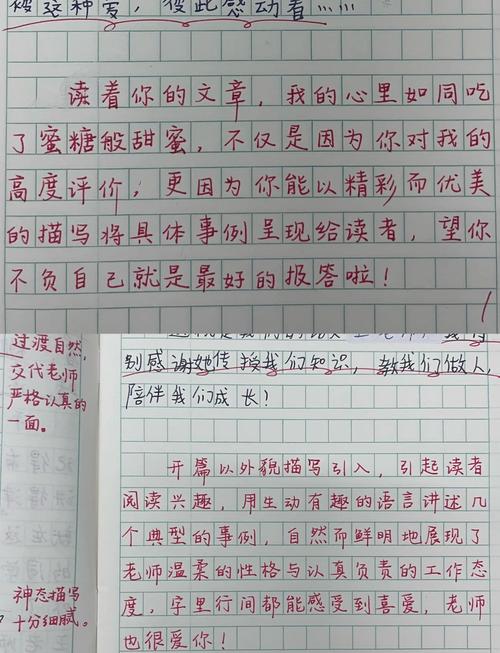 被这种爱，彼此感动着……
读着你的文章，我的心里如同吃
了蜜糖般甜蜜，不仅是因为你对我的
高度评价，更因为你能以精彩而优美
的描写将具体事例呈现给读者，望你
不负自己就是最好的报答啦！
过渡自然，
交代老师
严格认真的
一面。
别感谢她传授我们知识，教我们做人，
陪伴我们成长！
开篇以外貌描写引入，引起读者
阅读兴趣，用生动有趣的语言讲述几
个典型的事例，自然而鲜明地展现了
老师温柔的性格与认真负责的工作态
度，字里行间都能感受到喜爱，老师
也很爱你！
神态描写
十分细腻。